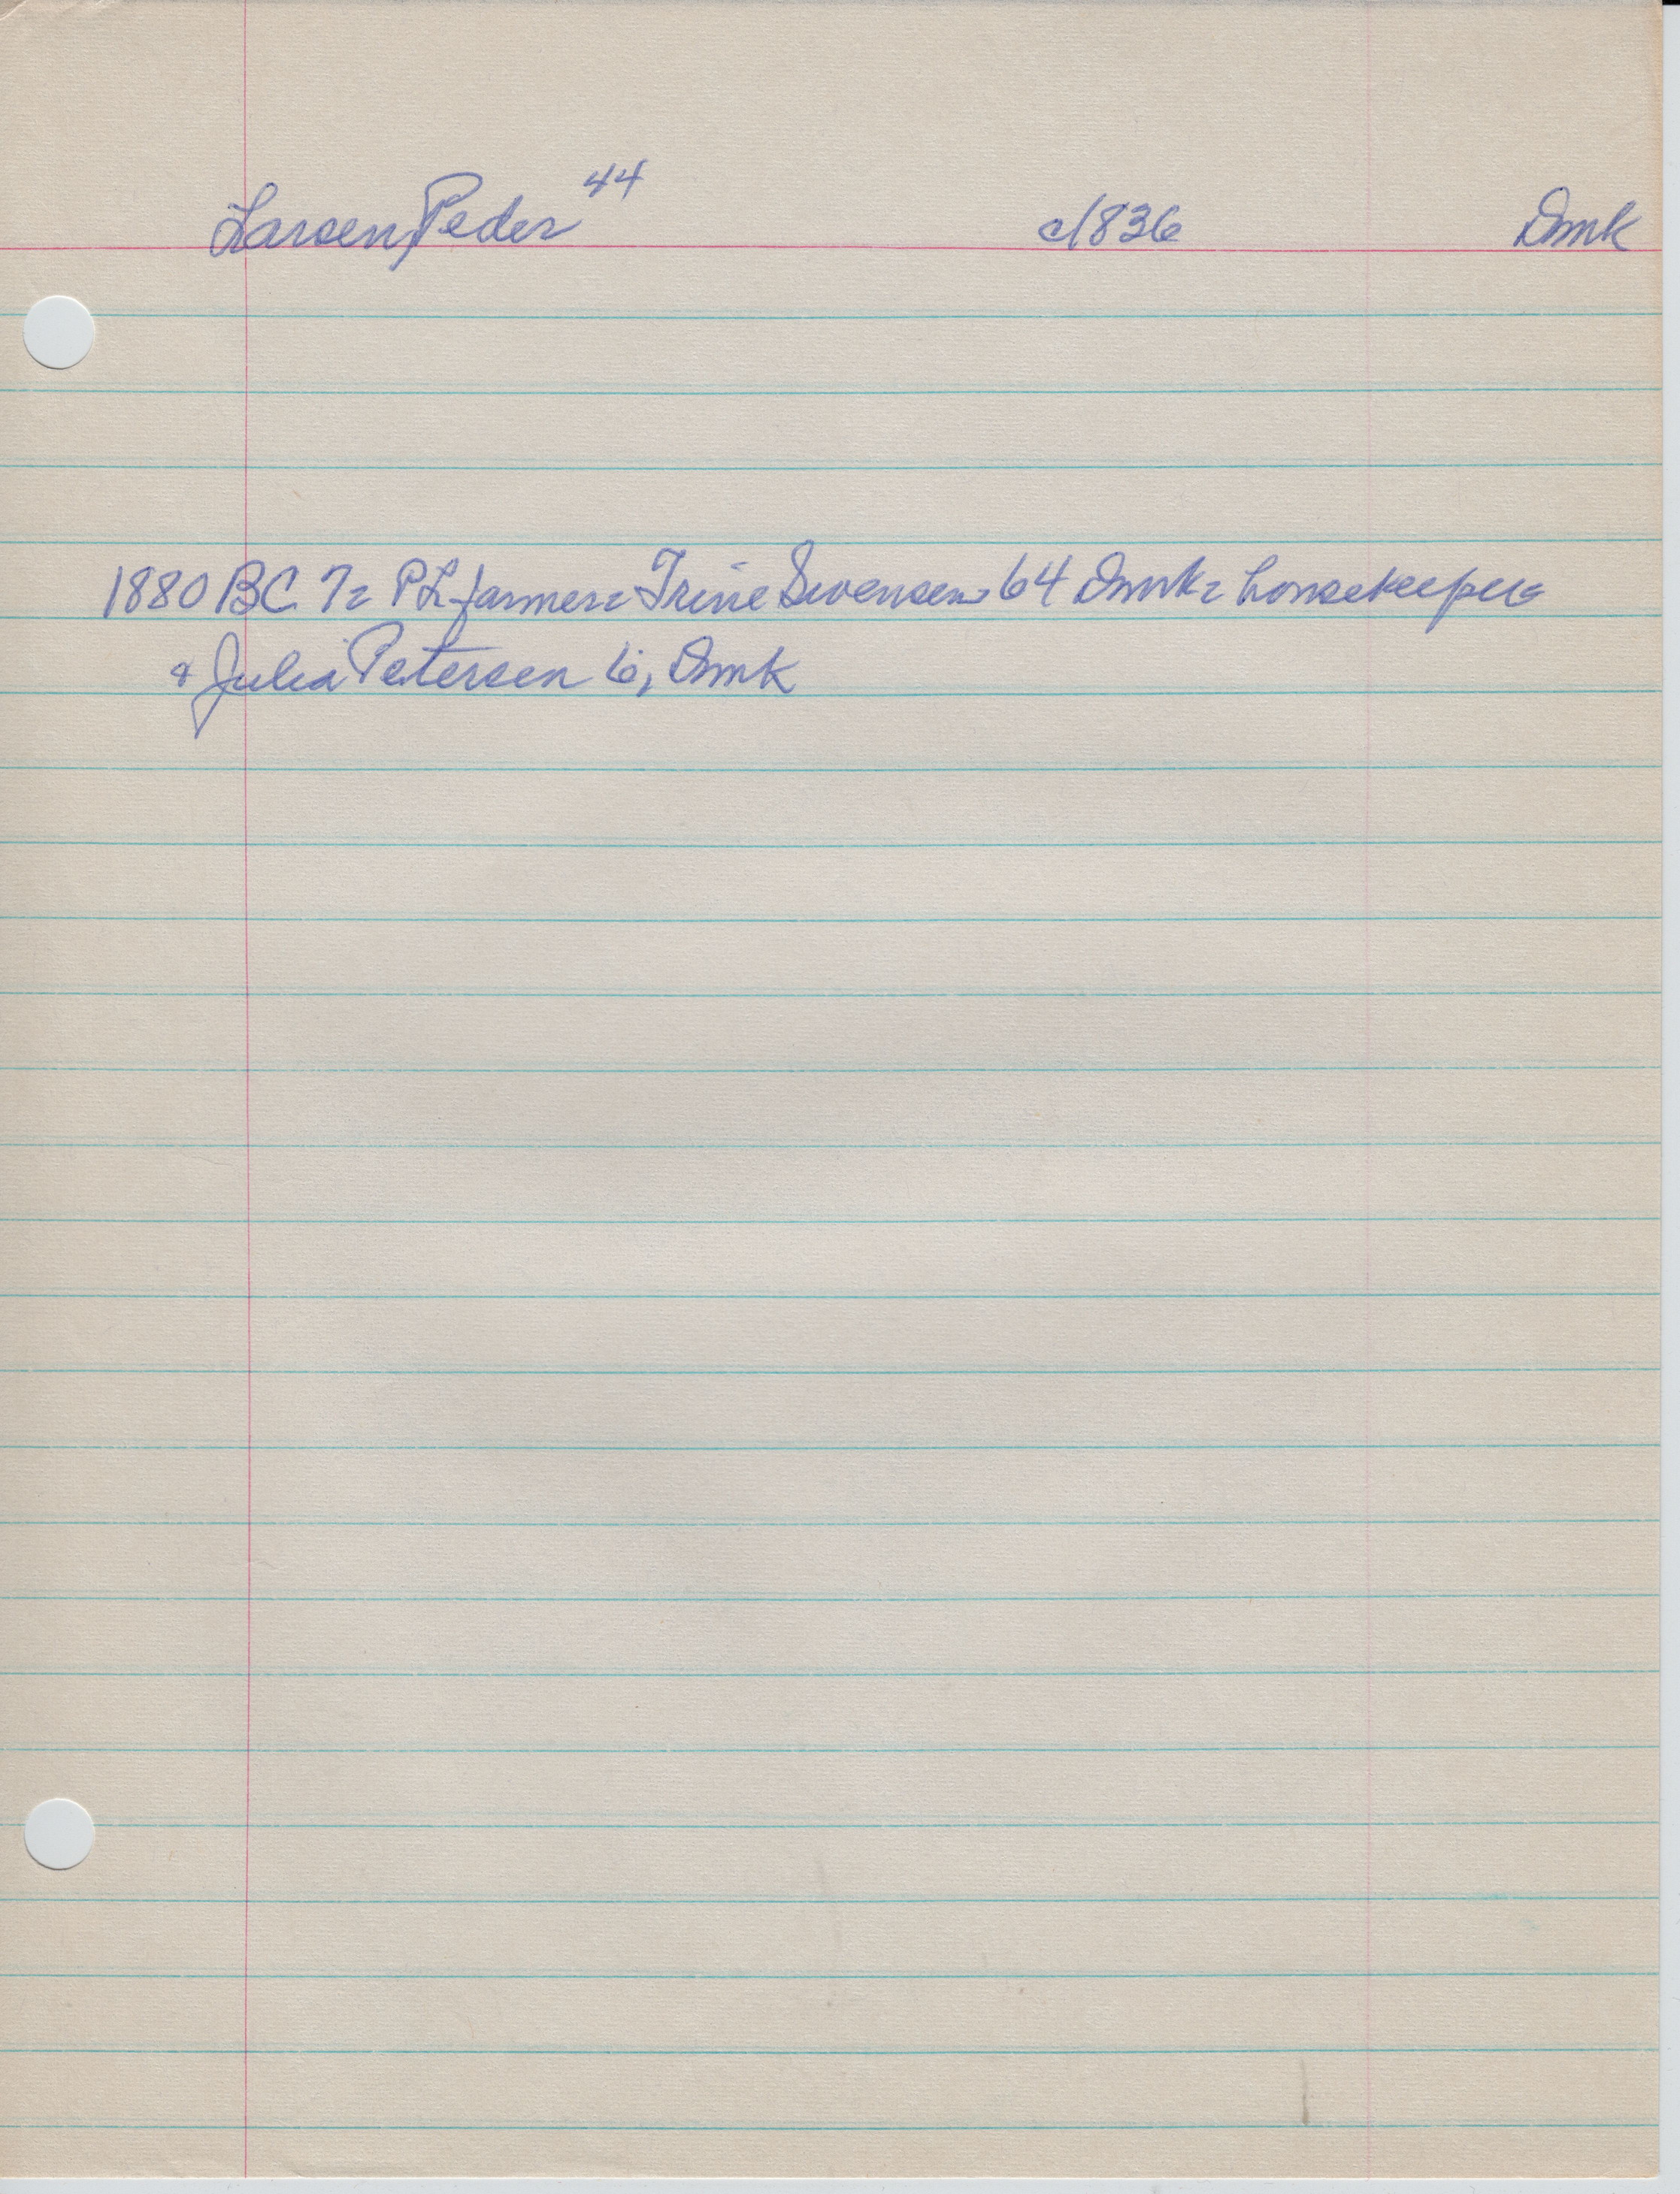 Larsen, Peder 44 c/836 Dmk
1880 BC 7= PL farmer= Trine Swensen 64 Dmk= housekeeper
& Julia Petersen 6, Dmk